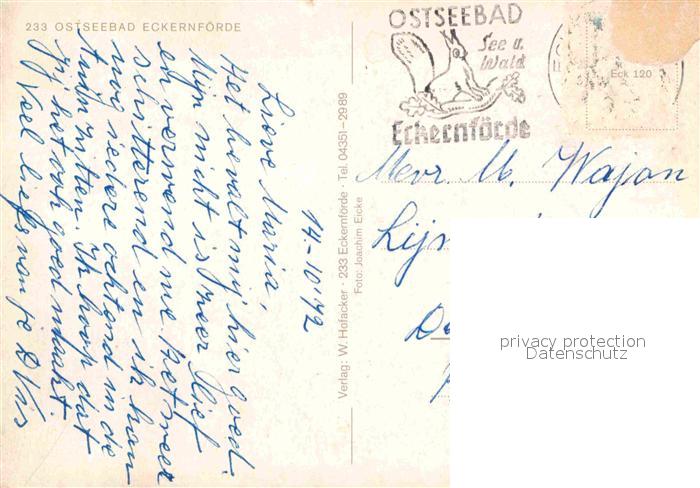 233 OSTSEEBAD ECKERNFÖRDE
14-10'72
Lieve Maria,
Het bevalt mij hier goed.
Mijn nicht is zeer lief
en verwend me. Het weer
schitterend en ik kan
nog iedere ochtend in de
tuin zitten. Ik hoop dat
jij het ook goed maakt.
Veel liefs van je
Verlag: W. Hofacker · 233 Eckernförde · Tel. 04351-2989
Foto: Joachim Eicke
OSTSEEBAD
See u.
Wald
Eckernförde
Eck 120
Mevr. M. Wajon
privacy protection
Datenschutz